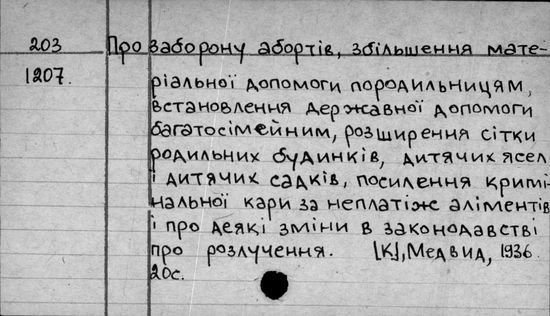 203 Про заборону абортів, збільшення мате-
1207. ріальної допомоги породильницям,
встановлення державної допомоги
багатосімейним, розширення сітки
родильних будинків, дитячих ясел
і дитячих садків, посилення кримі-
нальної кари за неплатіж аліментів
і про деякі зміни в законодавстві
про розлучення. [К], Медвид, 1936
20с.